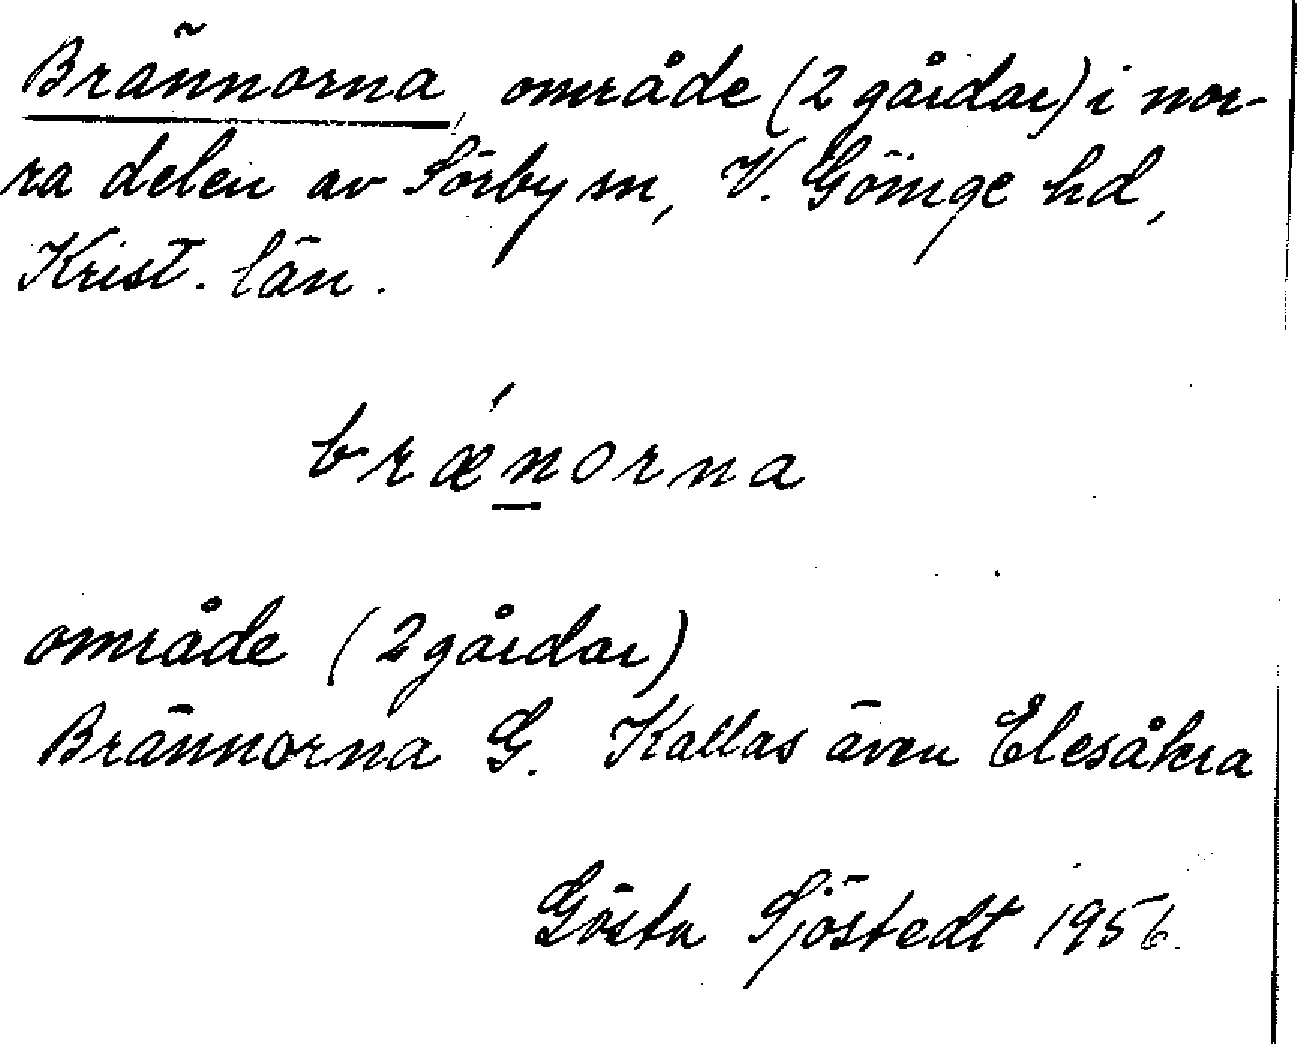 Brännorna, område (2 gårdar) i nor-
ra delen av Sörby sn, V. Göinge hd,
Krist. län.
brǽn̲orna
område (2 gårdar)
Brännorna G. Kallas även Elesåkra
Gösta Sjöstedt 1956.